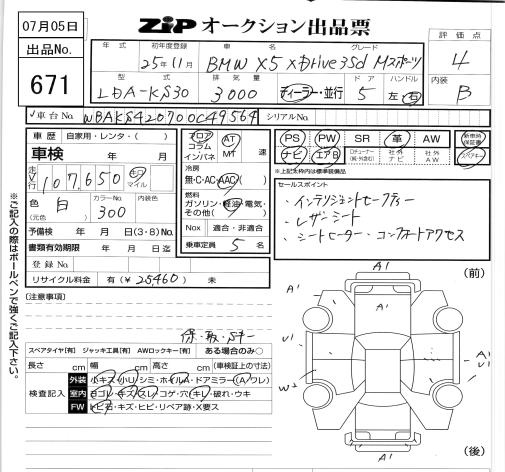 07月05日
ZIP オークション出品票
出品No.
671
年式
初年度登録
車名
グレード
25年11月
BMW X5 xDrive35d Mスポーツ
型式
排気量
ドア
ハンドル
LDA-KS30
3000
ディーラー・並行
5
左・右
評価点
4
内装
B
車台No.
WBAKS420700C49564
シリアルNo.
車歴
自家用・レンタ・( )
車検
年 月
走行
107,650
キロ
マイル
色
(元色)
白
カラーNo.
300
内装色
予備検 年 月 日(3・8)No.
書類有効期限 年 月 日
登録No.
リサイクル料金 有(¥25460) 未
フロア
コラム
インパネ
AT
MT
速
冷房
無・C・AC・AAC
燃料
ガソリン・軽油・電気・
その他( )
Nox 適合・非適合
乗車定員 5 名
PS
PW
SR
革
AW
新車時
保証書
ナビ
エアB
社外
ナビ
社外
AW
スペアキー
※上記太枠内は標準装備品
セールスポイント
・インテリジェントセーフティー
・レザーシート
・シートヒーター・コンフォートアクセス
[注意事項]
保・取・Sキー
スペアタイヤ[有] ジャッキ工具[有] AWロックキー[有] ある場合のみ○
長さ cm 幅 cm 高さ cm (車検証上の寸法)
検査記入
外装
小キズ・小U・シミ・ホイルA・ドアミラー(A・ワレ)
室内
ヨゴレ・キズ・スレ・コゲ・穴・キレ・破れ・ウキ
FW
トビ石・キズ・ヒビ・リペア跡・X要ス
※ご記入の際はボールペンで強くご記入下さい。
(前)
A1
A1
A1
U1
A1
U1
W2
A1
(後)